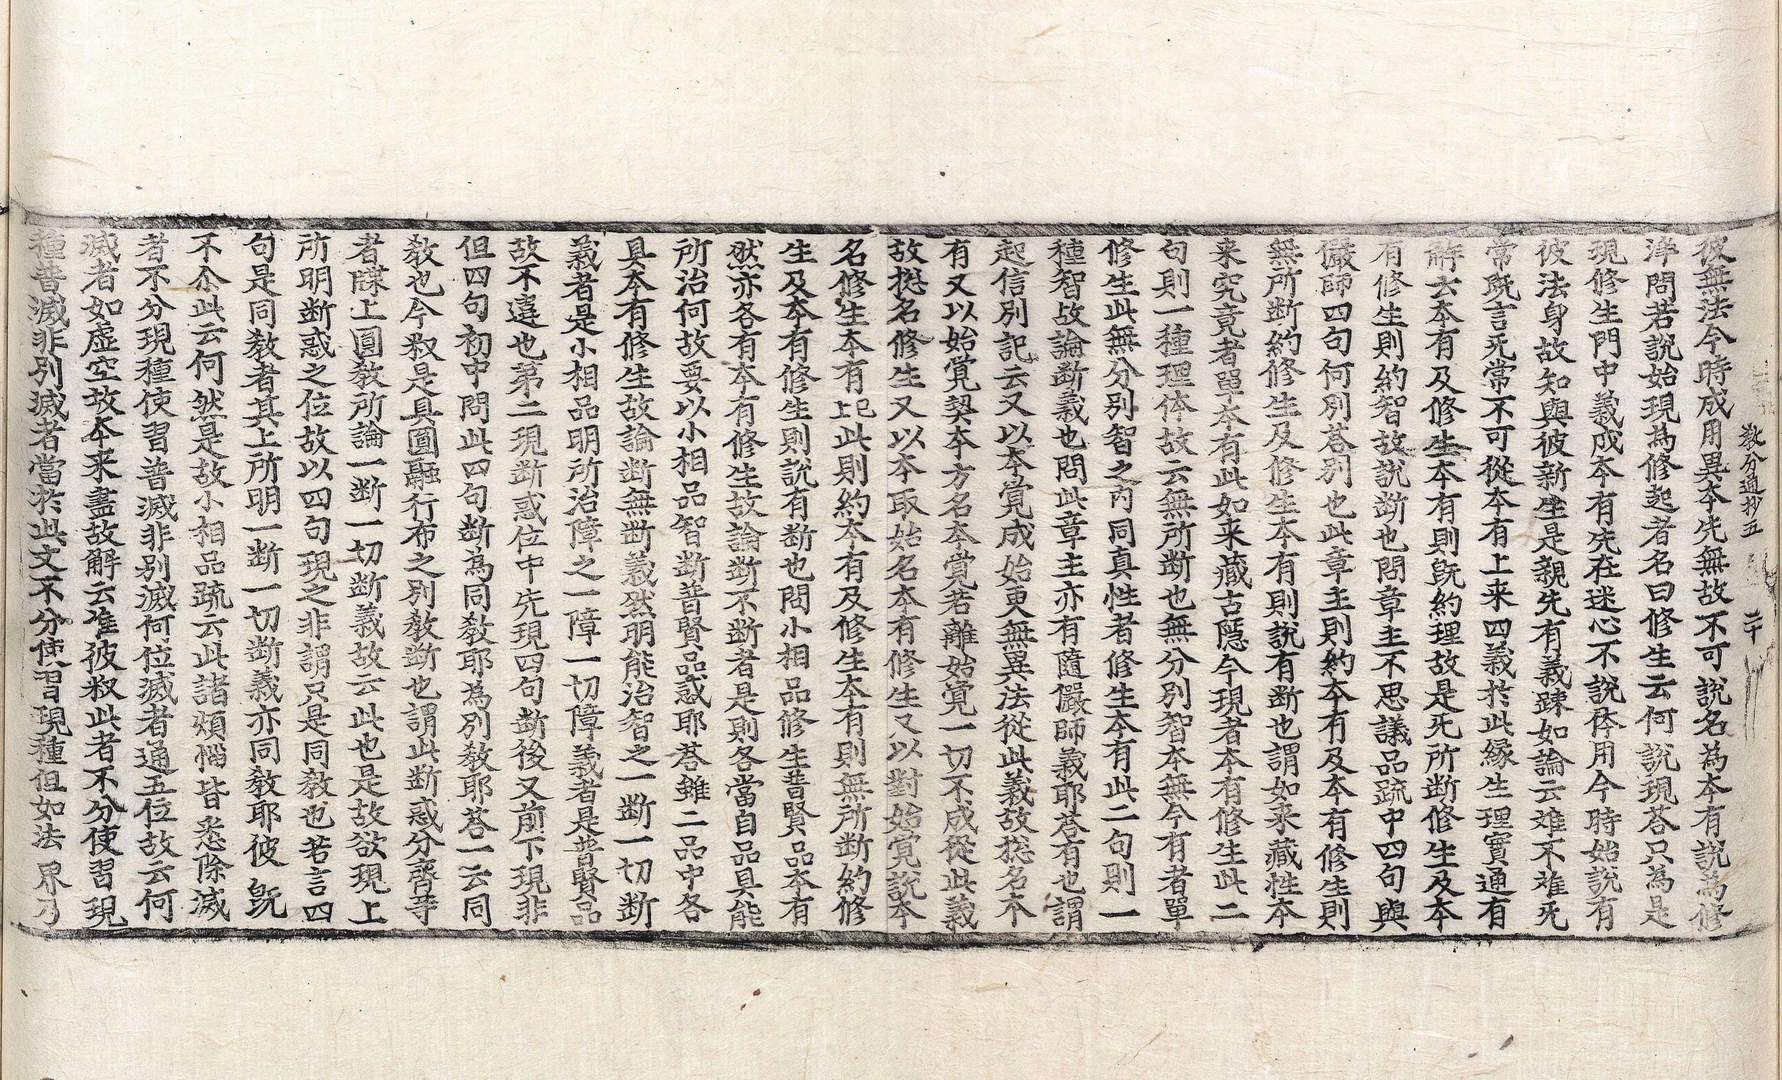 教分通抄五 二十
彼無法今時成用異本先無故不可說名為本有說為修
淨問若說始現為修起者名曰修生云何說現荅只為是
現修生門中義成本有先在迷心不說体用今時始說有
彼法身故知與彼新生是親先有義踈如論云难不难旡
常旣言旡常不可從本有上来四義扵此緣生理實通有
解云本有及修生本有則旣約理故是旡所断修生及本
有修生則約智故說断也問章主不思議品䟽中四句與
儼師四句何別荅別也此章主則約本有及本有修生則
無所断約修生及修生本有則說有断也謂如来藏性本
来究竟者單本有此如来藏古隱今現者本有修生此二
句則一種理体故云無所断也無分別智本無今有者單
修生此無分別智之內同真性者修生本有此二句則一
種智故論断義也問此章主亦有隨儼師義耶荅有也謂
起信別記云又以本覺成始更無異法從此義故捴名本
有又以始覺契本方名本覺若離始覺一切不成從此義
故捴名修生又以本取始名本有修生又以對始覺說本
名修生本有上已此則約本有及修生本有則無所断約修
生及本有修生則說有断也問小相品修生普賢品本有
然亦各有本有修生故論断不断者是則各當自品具能
所治何故要以小相品智断普賢品惑耶荅雖二品中各
具本有修生故論断無断義然明能治智之一断一切断
義者是小相品明所治障之一障一切障義者是普賢品
故不違也苐二現断惑位中先現四句断後又前下現非
但四句初中問此四句断為同敎耶為別敎耶荅一云同
敎也今叙是具圓融行布之別敎断也謂此断惑分齊等
者牒上圓敎所論一断一切断義故云此也是故欲現上
所明断惑之位故以四句現之非謂只是同敎也若言四
句是同敎者其上所明一断一切断義亦同敎耶彼旣
不尒此云何然是故小相品疏云此諸煩惱皆悉除滅
者不分現種使習普滅非别滅何位滅者通五位故云何
滅者如虛空故本来盡故解云准彼叙此者不分使習現
種普滅非別滅者當扵此文不分使習現種但如法界乃